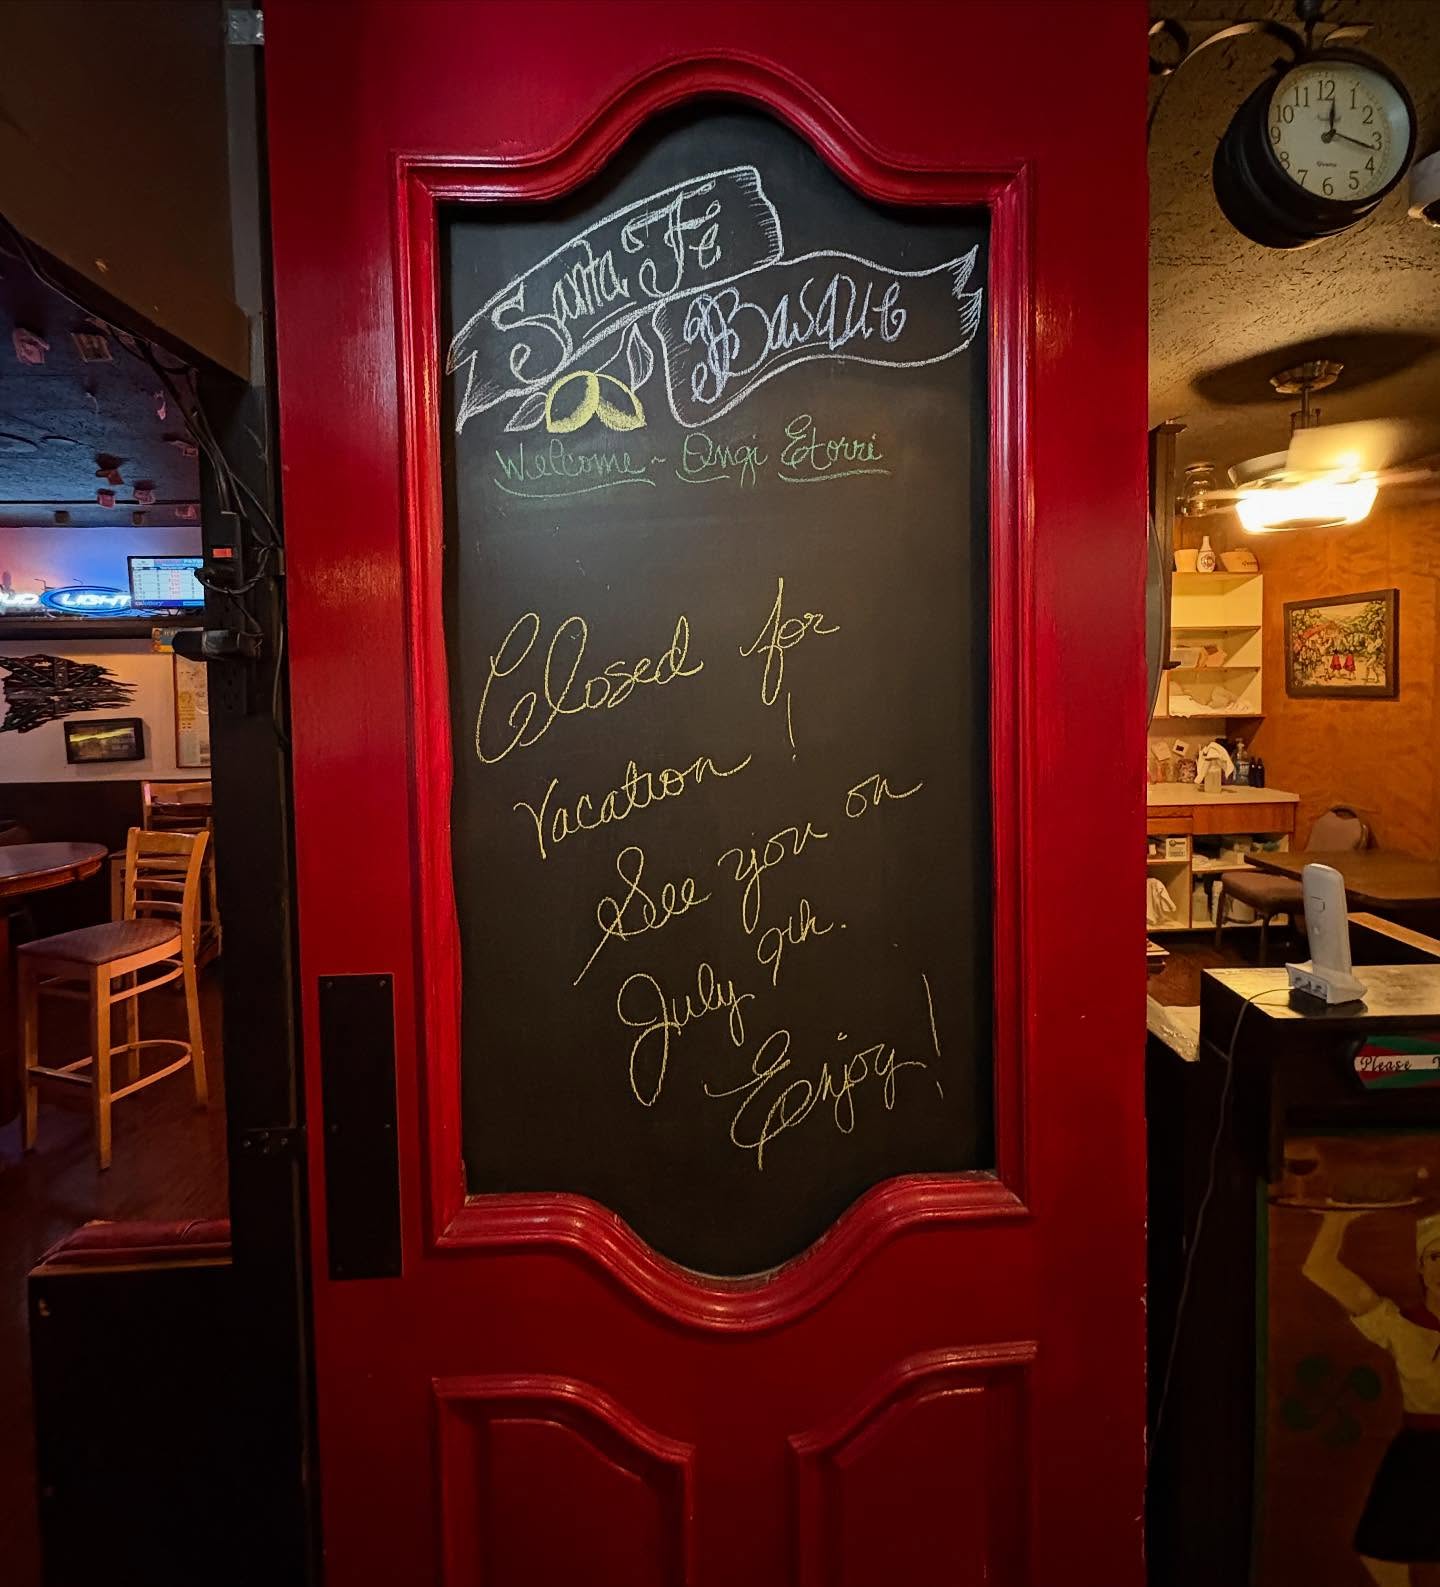 Santa Fe
Basque
Welcome ~ Ongi Etorri
Closed for
Vacation!
See you on
July 9th.
Enjoy!
11 12 1
10 2
9 3
8 4
7 6 5
LIGHT
Please